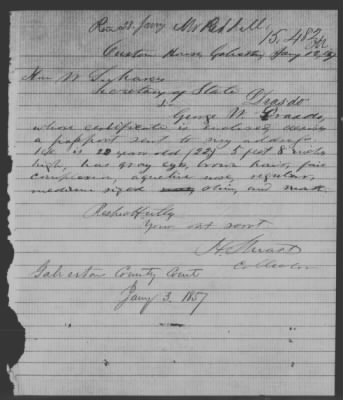 Rec 21 Jany Mr Reddall
15,482
Custom House, Galveston Jany 12/57
Hon W. L. Marcy
Secretary of State
Sir
George W.
whose certificate is enclosed desires
a passport sent to my address.
He is 22 years old (22) 5 feet 8 inches
high, has gray eye, brown hair, fair
complexion, aquiline nose, regular,
medium sized chin, and
Respectfully
Your obt servt
H. Stuart
Collector
Galveston County Court
Jany 3. 1857